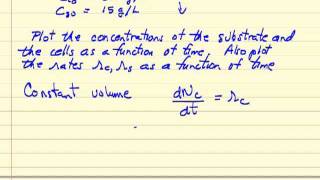 C_S0 = 15 g/L ↓
Plot the concentrations of the substrate and
the cells as a function of time. Also plot
the rates r_c, r_s as a function of time
Constant volume dN_c/dt = r_c